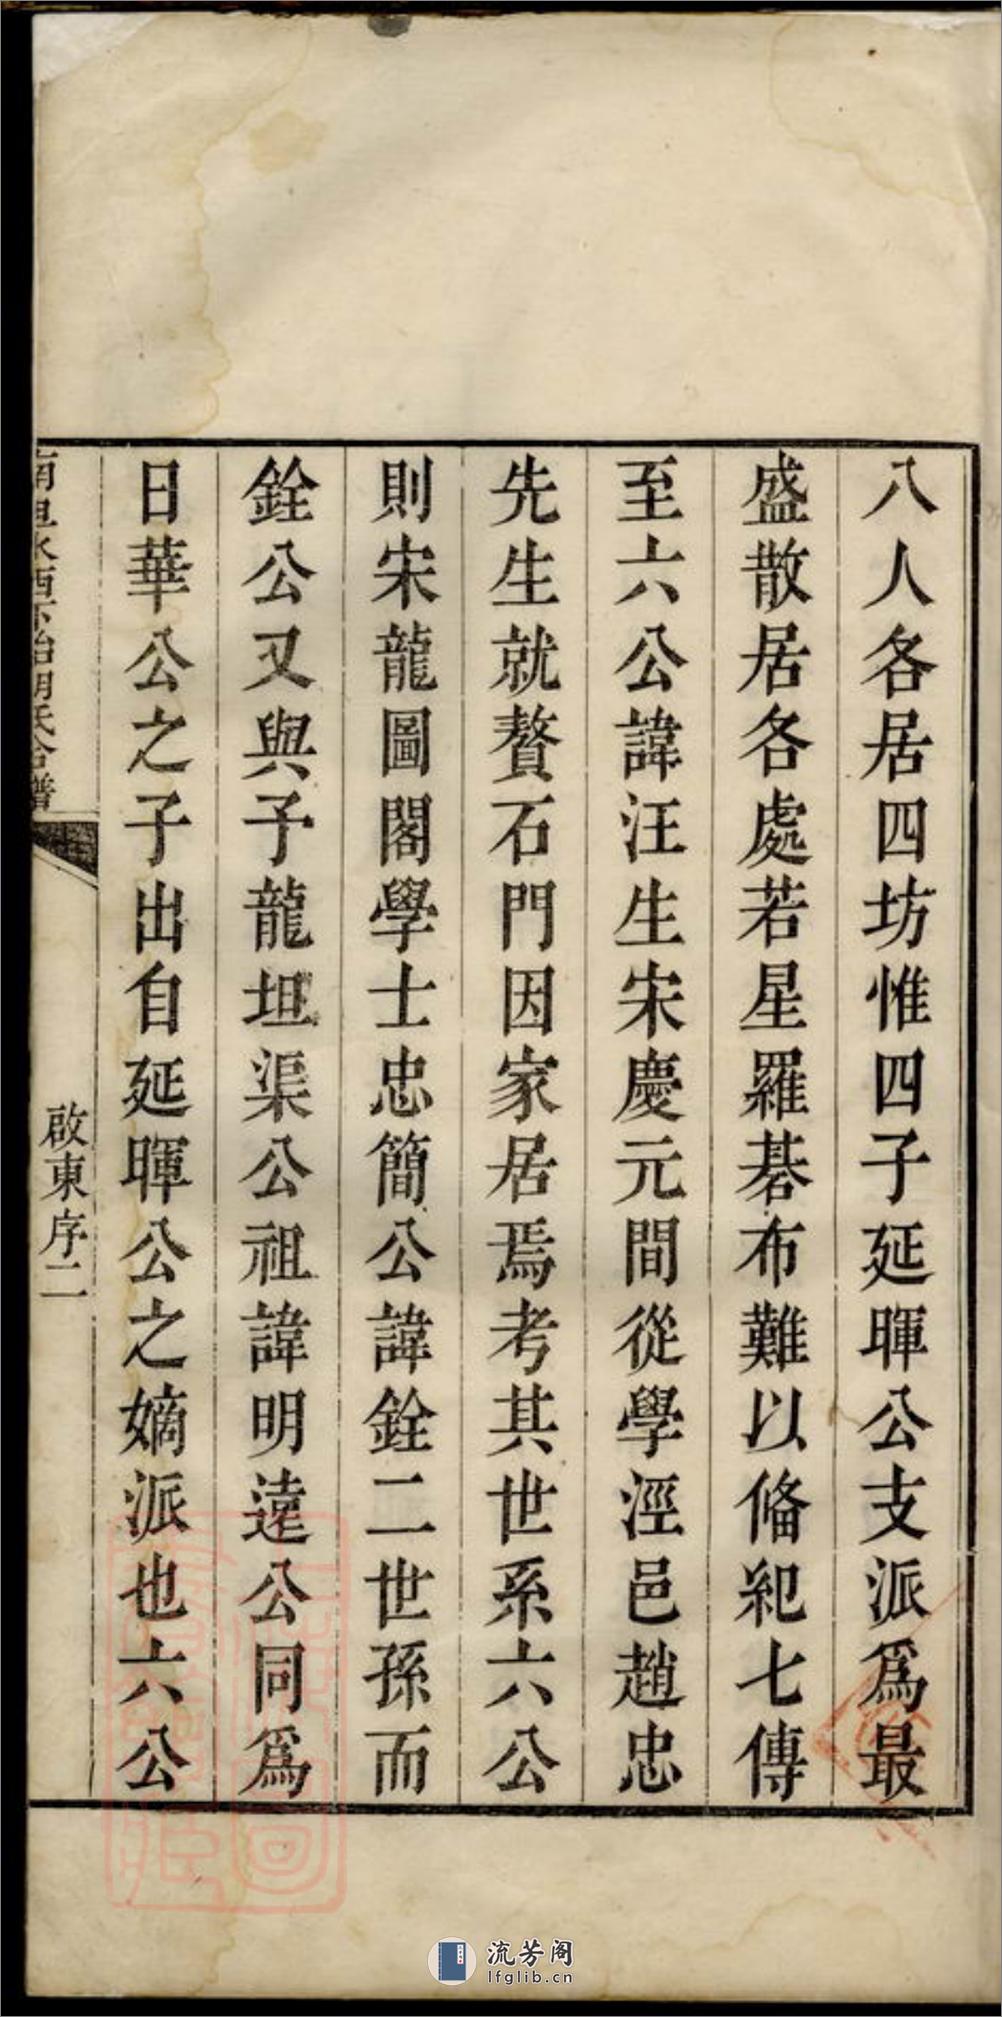 八人各居四坊惟四子延暉公支派爲最
盛散居各處若星羅碁布難以偹紀七傳
至六公諱汪生宋慶元間從學涇邑趙忠
先生就贅石門因家居焉考其世系六公
則宋龍圖閣學士忠簡公諱銓二世孫而
銓公又與予龍坦渠公祖諱明遠公同爲
日華公之子出自延暉公之嫡派也六公
啟東序二
流芳阁
lfglib.cn